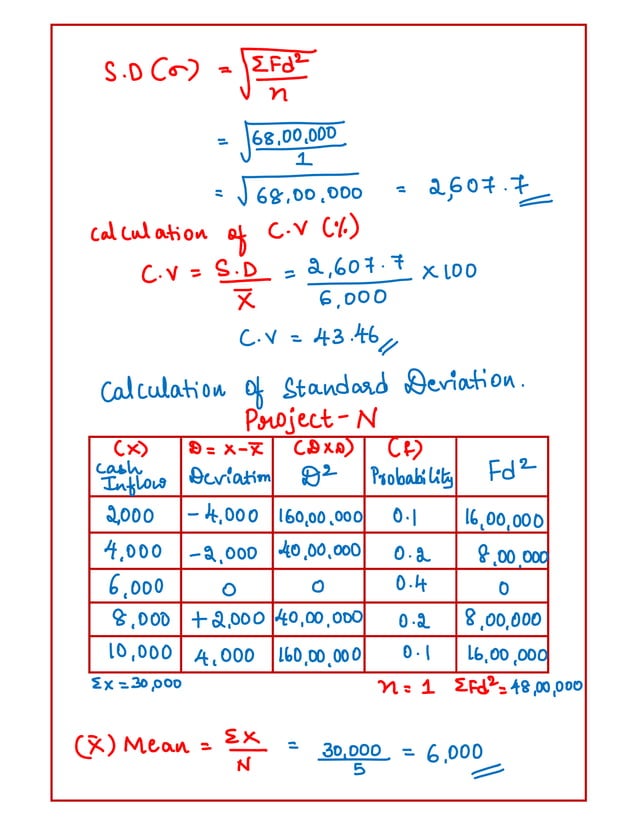 S.D (σ) = √ΣFd²/n
= √68,00,000/1
= √68,00,000 = 2,607.7
Calculation of C.V (%)
C.V = S.D/X̅ = 2,607.7/6,000 × 100
C.V = 43.46
Calculation of Standard Deviation.
Project - N
(X) Cash Inflow | D = X-X̅ Deviation | (D×D) D² | (f) Probability | Fd²
2,000 | -4,000 | 160,00,000 | 0.1 | 16,00,000
4,000 | -2,000 | 40,00,000 | 0.2 | 8,00,000
6,000 | 0 | 0 | 0.4 | 0
8,000 | +2,000 | 40,00,000 | 0.2 | 8,00,000
10,000 | 4,000 | 160,00,000 | 0.1 | 16,00,000
Σx = 30,000 n = 1 ΣFd² = 48,00,000
(X̅) Mean = ΣX/N = 30,000/5 = 6,000